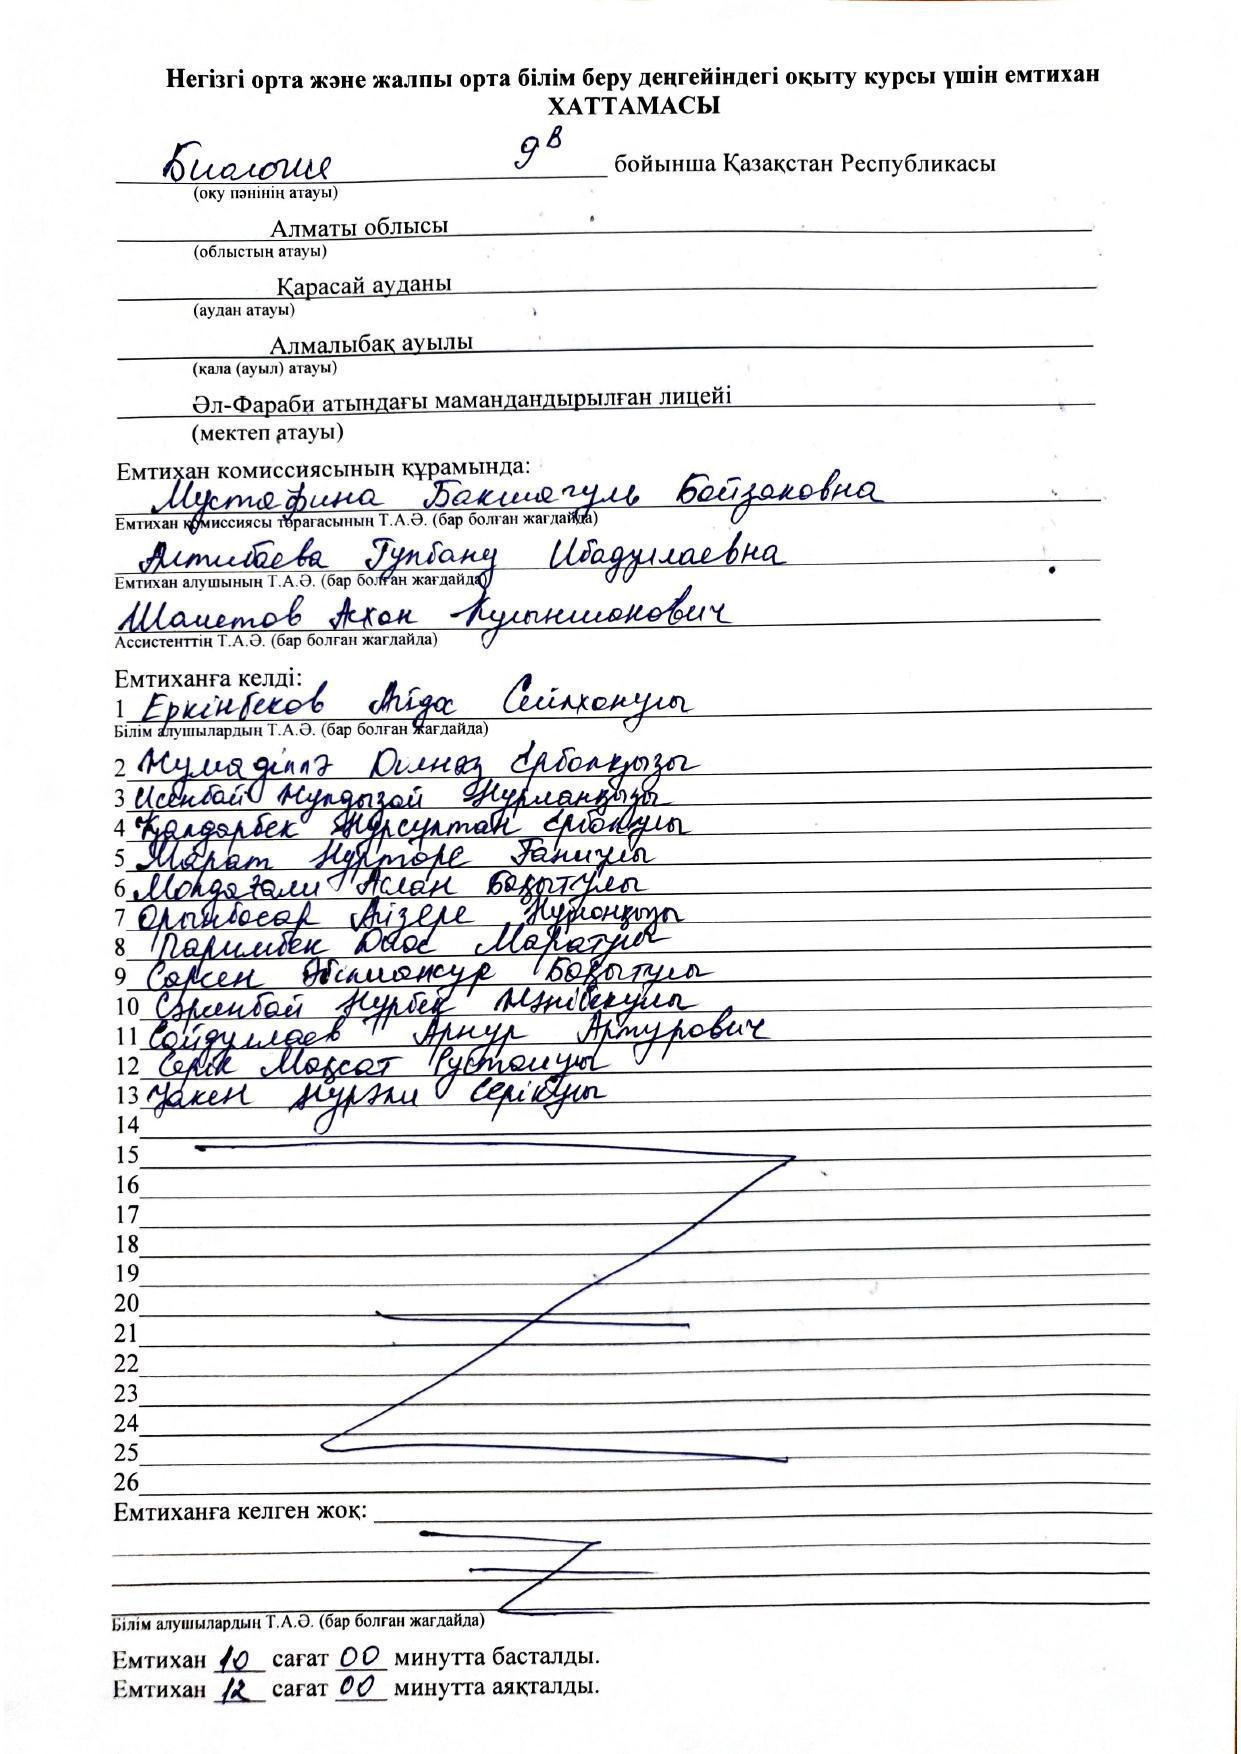 Негізгі орта және жалпы орта білім беру деңгейіндегі оқыту курсы үшін емтихан
ХАТТАМАСЫ
Биология 9В бойынша Қазақстан Республикасы
(оқу пәнінің атауы)
Алматы облысы
(облыстың атауы)
Қарасай ауданы
(аудан атауы)
Алмалыбақ ауылы
(қала (ауыл) атауы)
Әл-Фараби атындағы мамандандырылған лицейі
(мектеп атауы)
Емтихан комиссиясының құрамында:
Мустафина Бакшагуль Бойзаковна
Емтихан комиссиясы төрағасының Т.А.Ә. (бар болған жағдайда)
Алтибаева Гулбану Ибадуллаевна
Емтихан алушының Т.А.Ә. (бар болған жағдайда)
Шаметов Асхан Кулыншакович
Ассистенттің Т.А.Ә. (бар болған жағдайда)
Емтиханға келді:
1 Еркінбеков Айдос Сейлханұлы
Білім алушылардың Т.А.Ә. (бар болған жағдайда)
2 Жұмаділлә Дильназ Ерболқызы
3 Исенбай Жулдызай Нұрланқызы
4 Қалдарбек Нұрсұлтан Ерболұлы
5 Марат Нұртөре Ғаниұлы
6 Молдағали Аслан Бақытұлы
7 Орынбосар Айзере
8 Паримбек Маратұлы
9 Сәрсен Әбілмансұр Бақытұлы
10 Сәрсенбай Нұрбек Жәнібекұлы
11 Сайдуллаев Арнур Артурович
12 Серік Мақсат Рустамұлы
13 Уакен Нұрәли Серікұлы
14
15
16
17
18
19
20
21
22
23
24
25
26
Емтиханға келген жоқ:
Білім алушылардың Т.А.Ә. (бар болған жағдайда)
Емтихан 10 сағат 00 минутта басталды.
Емтихан 12 сағат 00 минутта аяқталды.